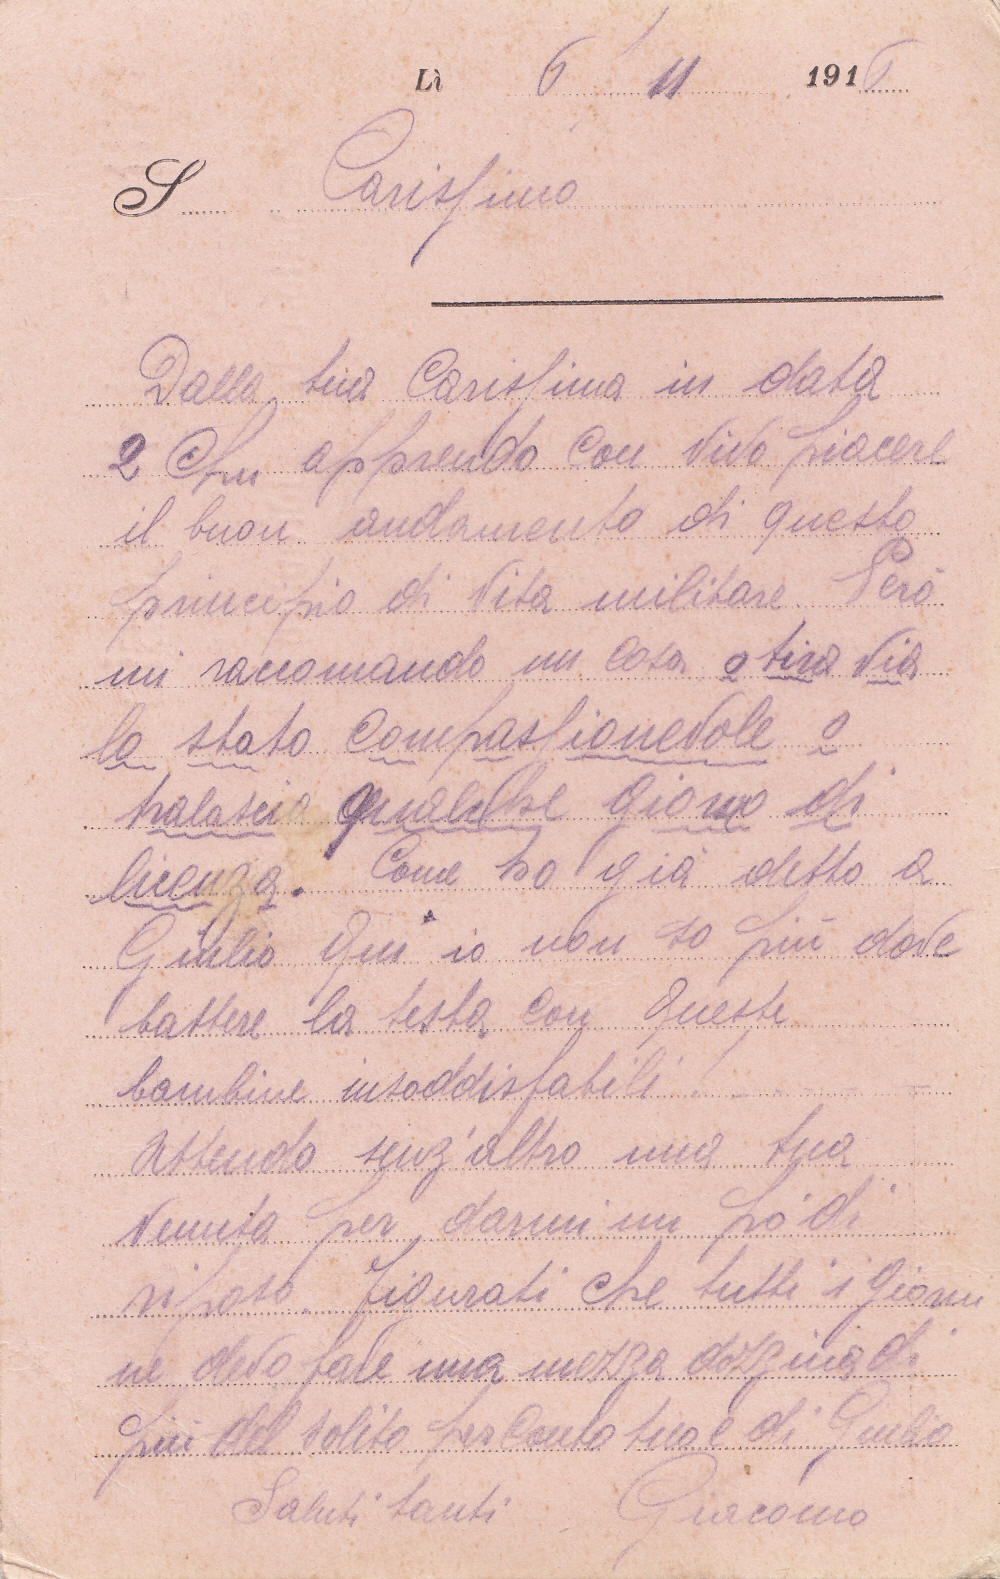 Lì 6 / 11 1916
S Carissimo
Dalla tua Carissima in data
2 Chu apprendo con vivo piacere
il buon andamento di questo
principio di vita militare. Però
mi raccomando un cosa o tira via
lo stato compassionevole o
tralascia qualche giorno di
licenza. Come ho già detto a
Giulio qui io non so più dove
battere la testa con queste
bambine insoddisfabili!
Attendo senz'altro una tua
venuta per darmi un pò di
riposo. Figurati che tutti i giorni
ne devo fare una mezza dozzina di
più del solito per conto tuo e di Giulio
Saluti tanti Giacomo